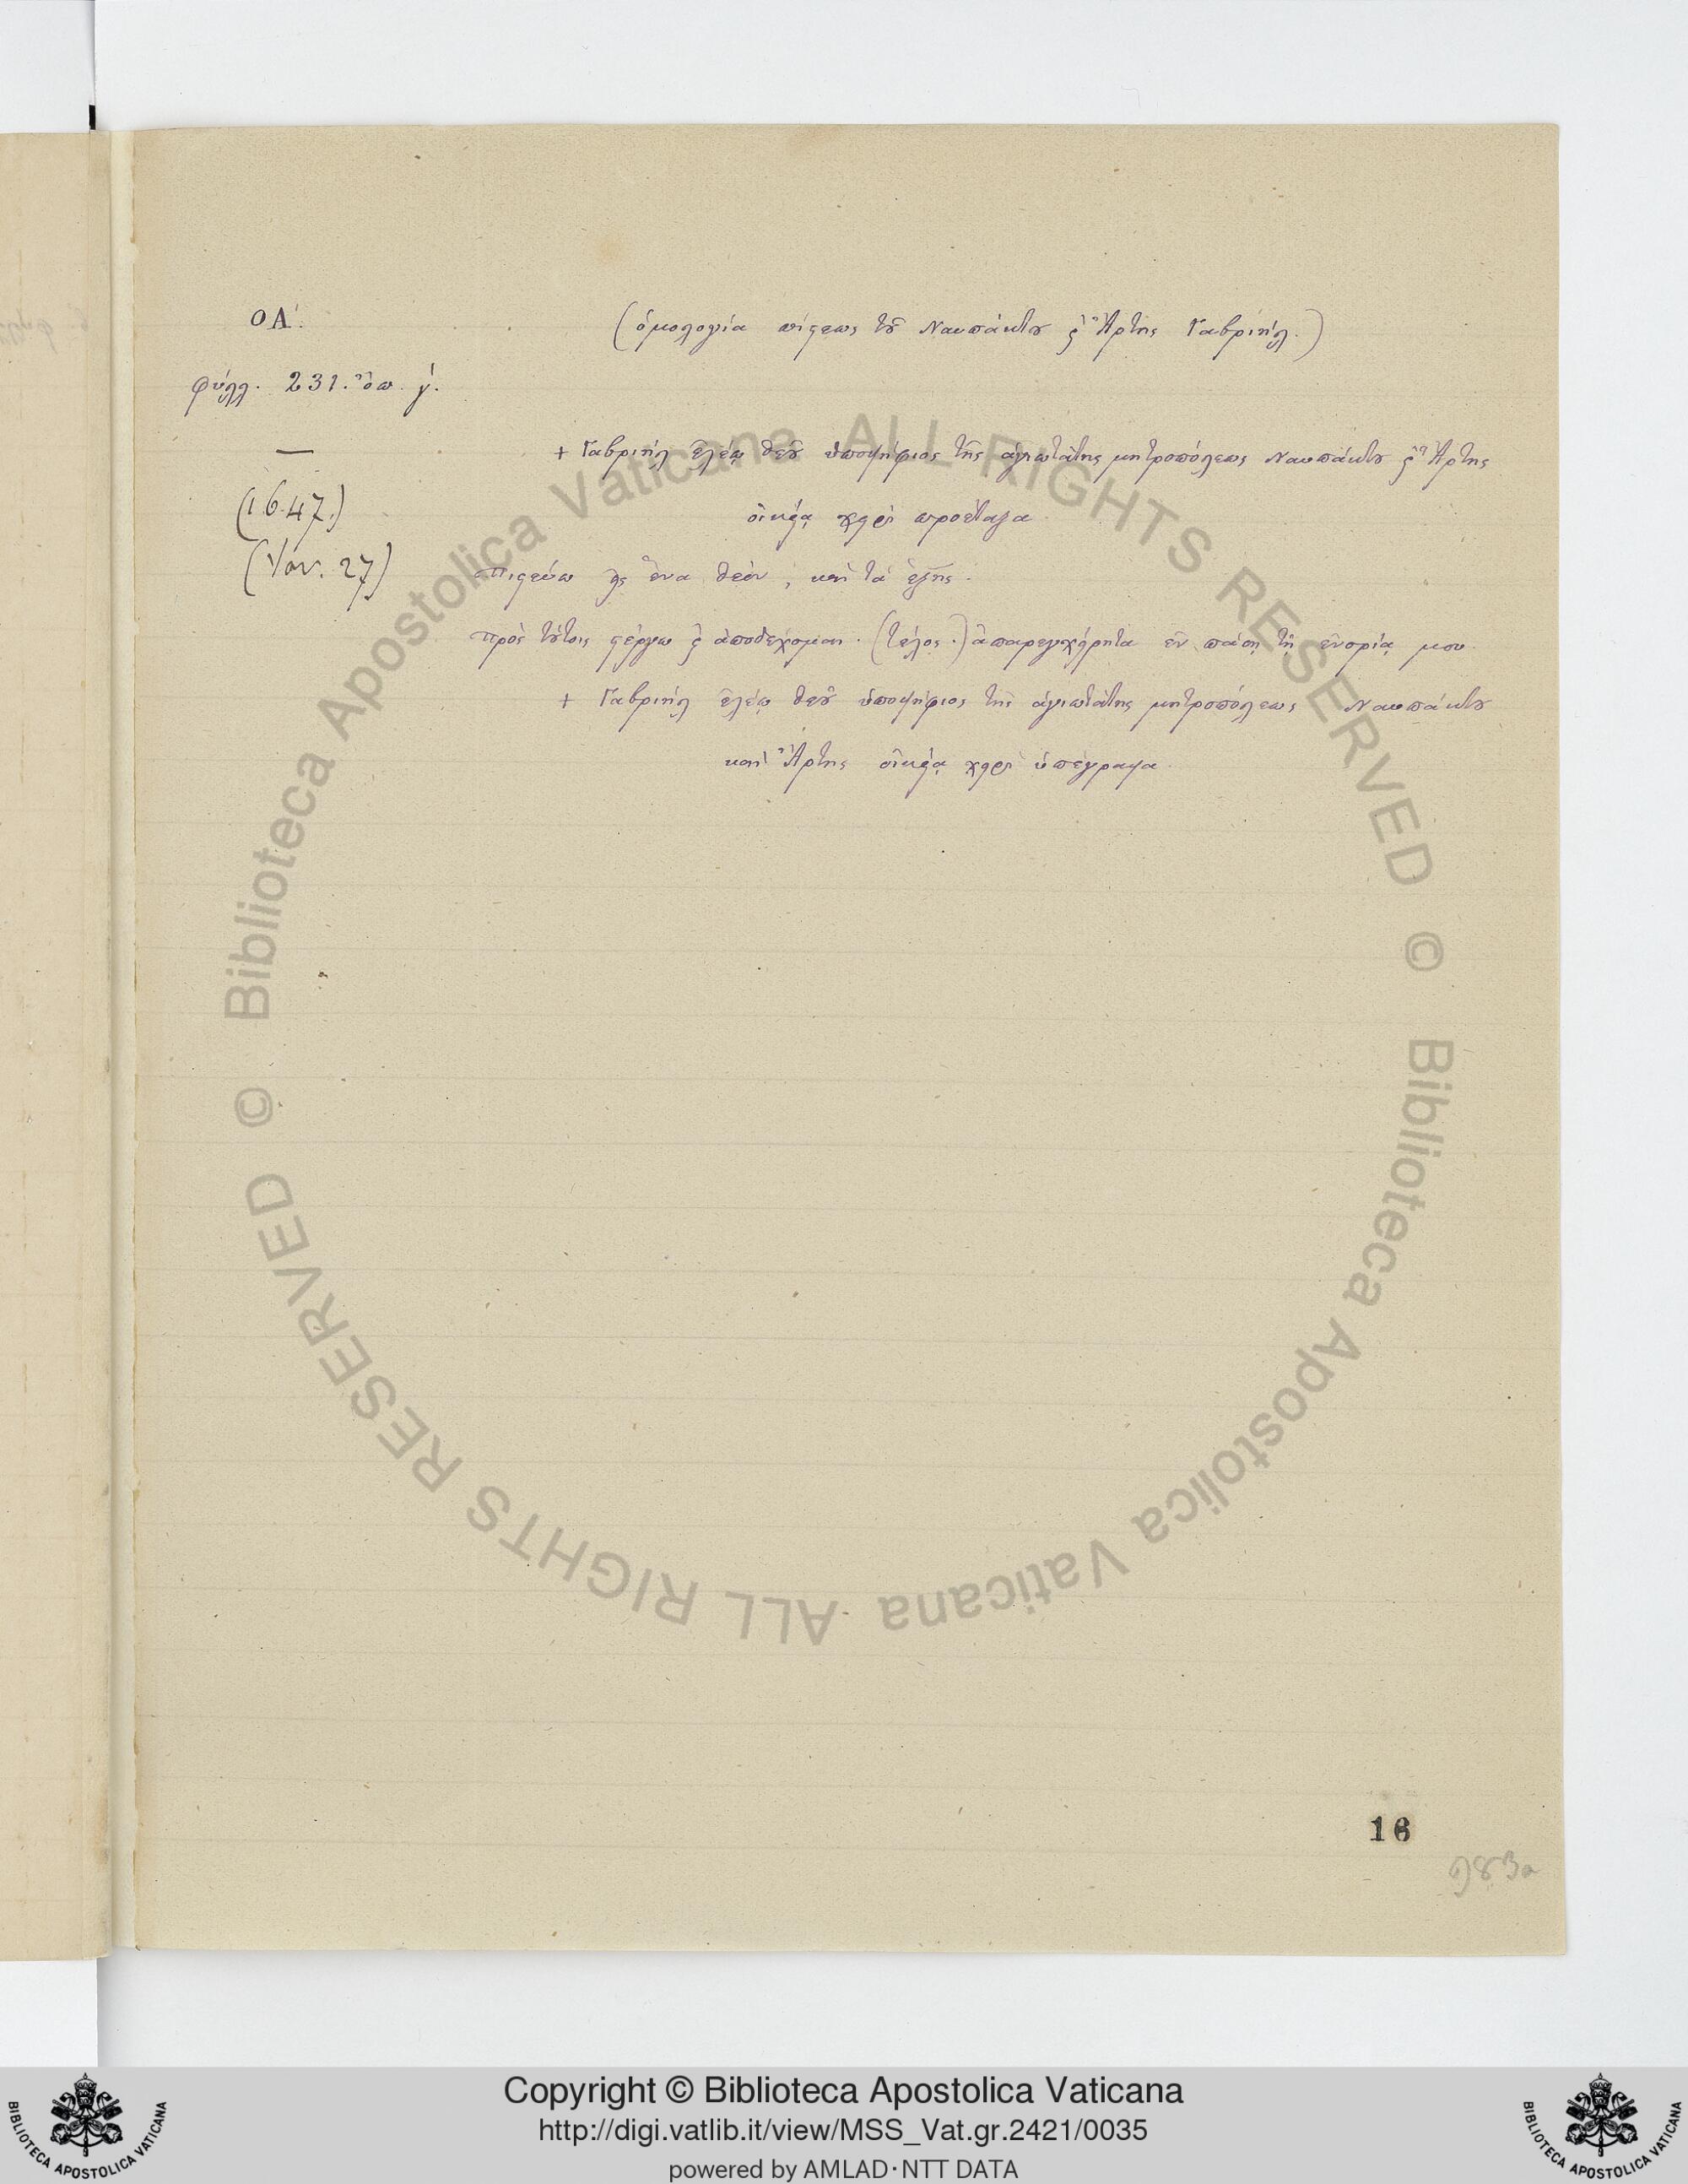 ΟΑ΄.
(ὁμολογία πίστεως τοῦ Ναυπάκτου ϗ Ἄρτης Γαβριήλ.)
φύλλ. 231. ὄπ. γ΄.
+ Γαβριὴλ ἐλέῳ θεοῦ ὑποψήφιος τῆς ἁγιωτάτης μητροπόλεως Ναυπάκτου ϗ Ἄρτης
(1647.)
οἰκείᾳ χειρὶ προέταξα
(Ἰάν. 27)
Πιστεύω εἰς ἕνα θεόν, καὶ τὰ ἑξῆς.
Πρὸς τούτοις στέργω ϗ ἀποδέχομαι. (τέλος.) ἀπαρεγχείρητα ἐν πάσῃ τῇ ἐνορίᾳ μου
+ Γαβριὴλ ἐλέῳ θεοῦ ὑποψήφιος τῆς ἁγιωτάτης μητροπόλεως Ναυπάκτου
καὶ Ἄρτης οἰκείᾳ χειρὶ ὑπέγραψα.
© Biblioteca Apostolica Vaticana ALL RIGHTS RESERVED
© Biblioteca Apostolica Vaticana ALL RIGHTS RESERVED
16
Copyright © Biblioteca Apostolica Vaticana
http://digi.vatlib.it/view/MSS_Vat.gr.2421/0035
powered by AMLAD·NTT DATA
BIBLIOTECA APOSTOLICA VATICANA
BIBLIOTECA APOSTOLICA VATICANA